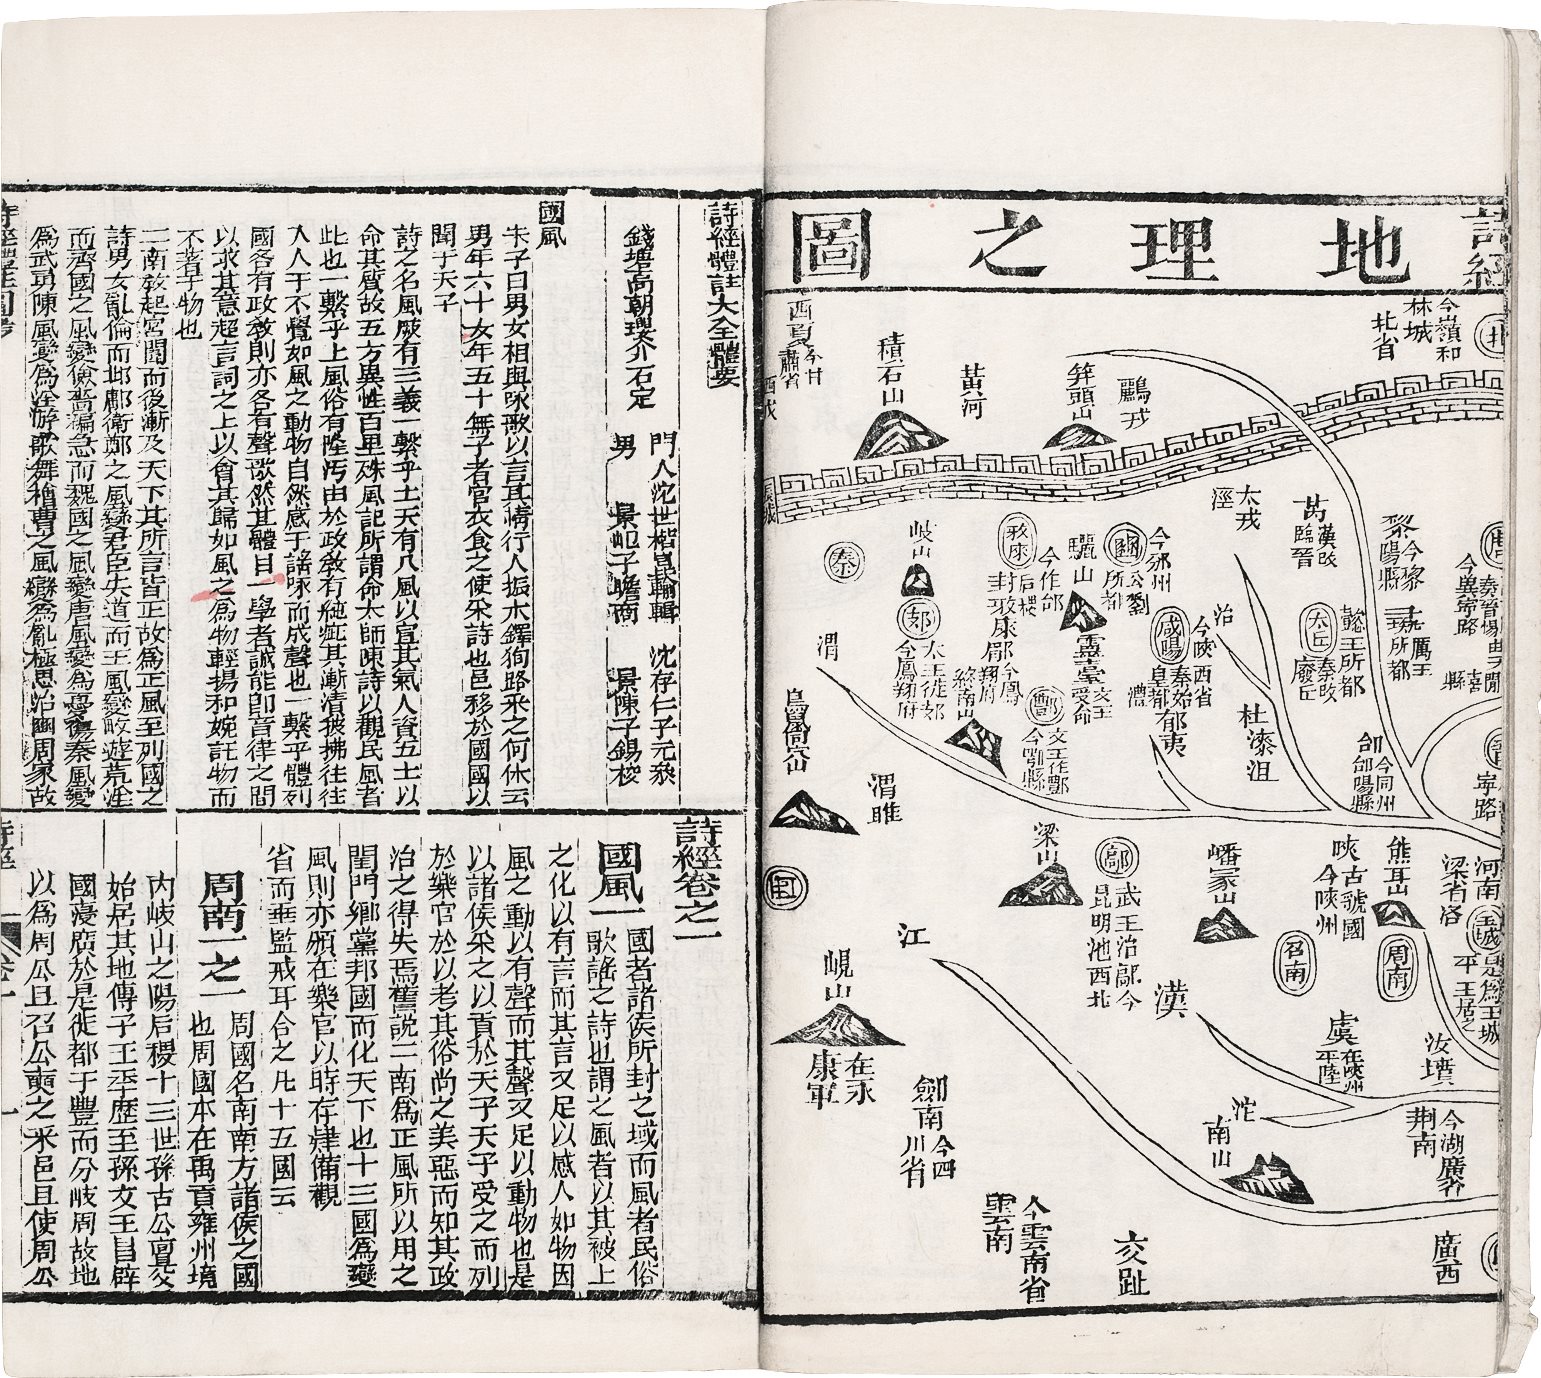 地理之圖
詩經
今嶺和
林城
北省
鸝戎
笄頭山
黃河
積石山
西夏
今甘
肅省
西戎
太戎
涇
萬
漢改
臨晉
黎
今黎
陽縣
厲王
所都
秦
岐山
邠
太王徙邠
今鳳翔府
后稷
封
今鳳
翔府
驪山
靈臺
文王
受命
豳
公劉
所都
今邠州
咸陽
秦始
皇都
今陝西省
澧
郁夷
治
犬丘
懿王所都
秦改
廢丘
杜漆沮
今同州
郃陽縣
寧路
渭
終南山
酆
文王作酆
今鄠縣
鳥鼠山
渭睢
梁山
鄗
武王治鄗今
昆明池西北
嶓冢山
陝
古虢國
今陝州
熊耳山
河南
王城
是為王城
平王居之
召南
周南
江
漢
峴山
在永
康軍
劍南
今四
川省
虞
在陝州
平陸
汝墳
沱
南山
荆南
今湖廣
雲南
今雲南省
交趾
廣西
詩經體註大全體要
錢塘高朝瓔介石定
門人沈世楷昆輯 沈存仁子元叅
男 景 子瞻 景陳子錫校
國風
朱子曰男女相與咏歌以言其情行人振木鐸狥路采之何休云
男年六十女年五十無子者官衣食之使采詩也邑移於國國以
聞于天子
詩之名風厥有三義一繫乎土天有八風以宣其氣人資五土以
命其質故五方異性百里殊風記所謂命太師陳詩以觀民風者
此也一繫乎上風俗有隆汚由於政敎有純疵其漸漬披拂往往
入人于不覺如風之動物自然感于諸咏而成聲也一繫乎體列
國各有政敎則亦各有聲歌然其體目一學者誠能卽音律之間
以求其意超言詞之上以會其歸如風之為物輕揚和婉託物而
不著于物也
二南敎起宮闈而後漸及天下其所言皆正故為正風至列國之
詩男女亂倫而邶鄘衛鄭之風變君臣失道而王風變畋遊荒淫
而齊國之風變儉嗇褊急而魏國之風變唐風變為憂傷秦風變
為武勇陳風變為淫游歌舞檜曹之風變為亂極思治豳周家故
詩經卷之一
國風一 國者諸侯所封之域而風者民俗
歌謠之詩也謂之風者以其被上
之化以有言而其言又足以感人如物因
風之動以有聲而其聲又足以動物也是
以諸侯采之以貢於天子天子受之而列
於樂官於以考其俗尚之美惡而知其政
治之得失焉舊說二南為正風所以用之
閨門鄉黨邦國而化天下也十三國為變
風則亦領在樂官以時存肄備觀
省而垂監戒耳合之凡十五國云
周南一之一 周國名南南方諸侯之國
也周國本在禹貢雍州境
內岐山之陽后稷十三世孫古公亶父
始居其地傳子王季歷至孫文王昌辟
國寖廣於是徙都于豐而分岐周故地
以為周公旦召公奭之采邑且使周公